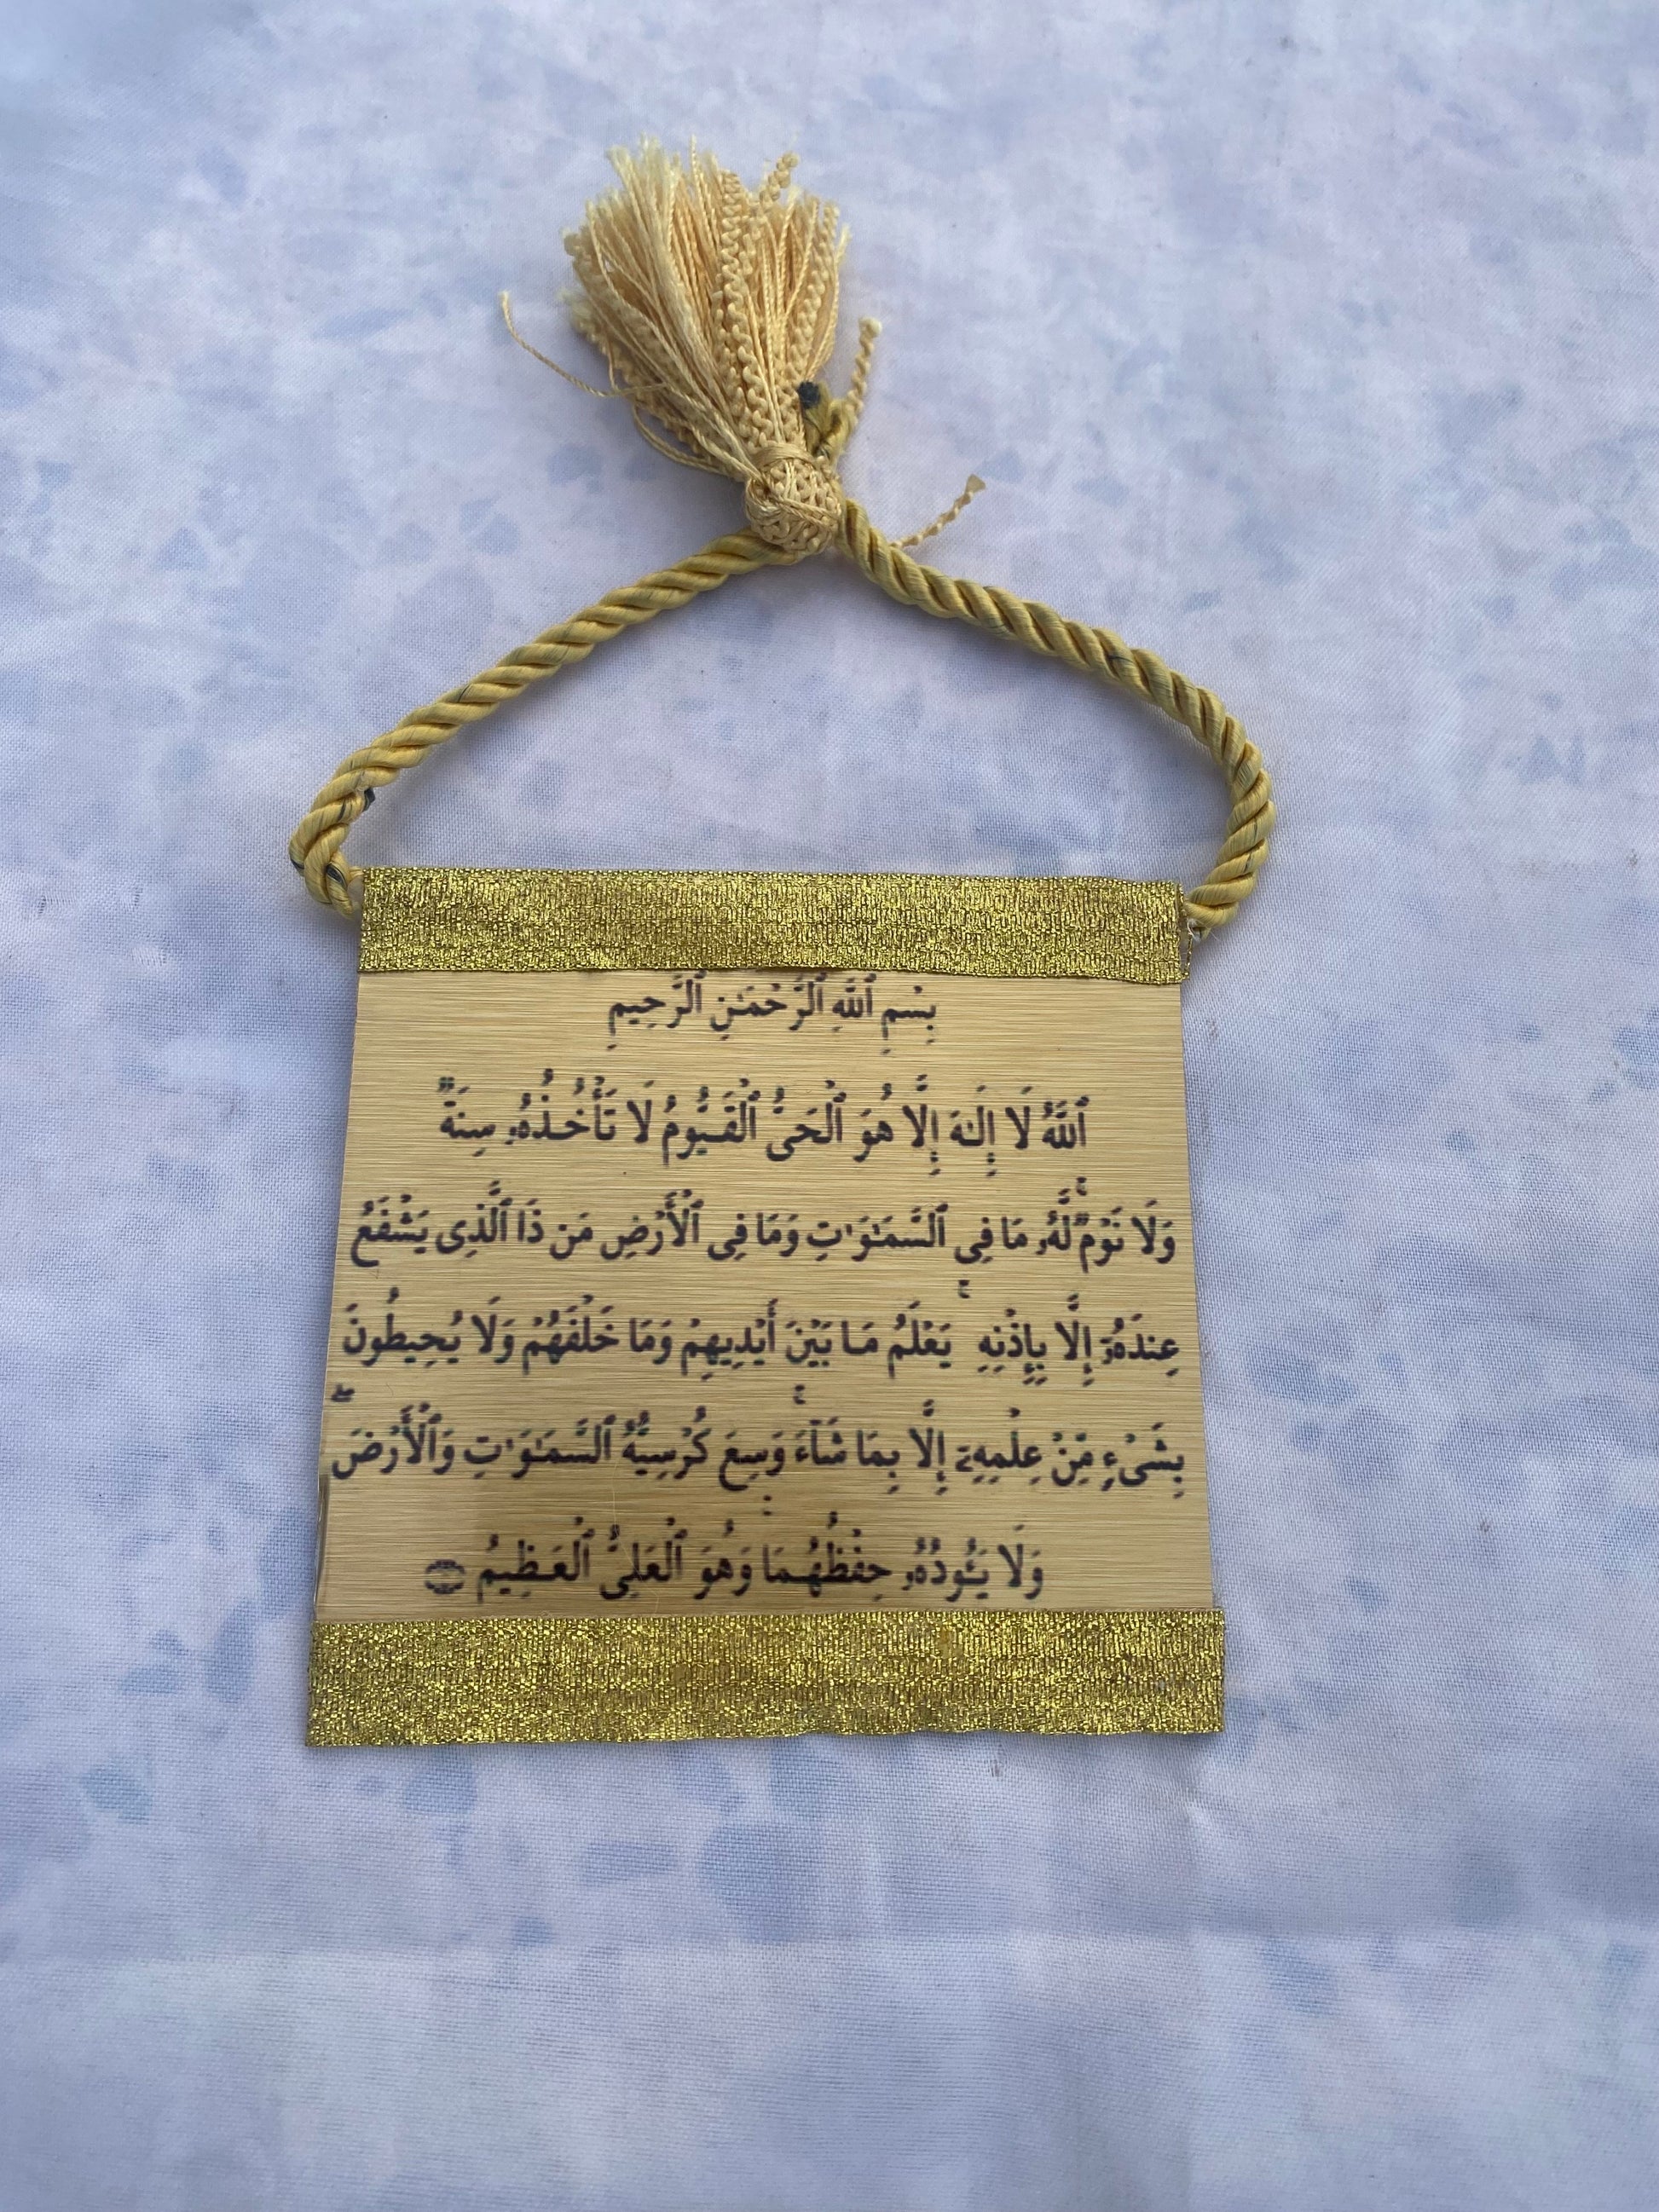 بِسْمِ ٱللَّهِ ٱلرَّحْمَـٰنِ ٱلرَّحِيمِ
ٱللَّهُ لَا إِلَـٰهَ إِلَّا هُوَ ٱلْحَىُّ ٱلْقَيُّومُ لَا تَأْخُذُهُۥ سِنَةٌ
وَلَا نَوْمٌ ۚ لَّهُۥ مَا فِي ٱلسَّمَـٰوَٰتِ وَمَا فِى ٱلْأَرْضِ مَن ذَا ٱلَّذِى يَشْفَعُ
عِندَهُۥٓ إِلَّا بِإِذْنِهِ ۚ يَعْلَمُ مَا بَيْنَ أَيْدِيهِمْ وَمَا خَلْفَهُمْ وَلَا يُحِيطُونَ
بِشَىْءٍ مِّنْ عِلْمِهِۦٓ إِلَّا بِمَا شَآءَ ۚ وَسِعَ كُرْسِيُّهُ ٱلسَّمَـٰوَٰتِ وَٱلْأَرْضَ ۖ
وَلَا يَـُٔودُهُۥ حِفْظُهُمَا ۚ وَهُوَ ٱلْعَلِىُّ ٱلْعَظِيمُ